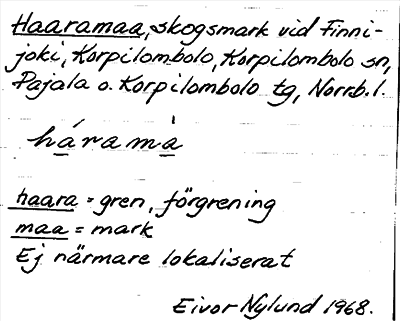 Haaramaa, skogsmark vid Finni-
joki, Korpilombolo, Korpilombolo sn,
Pajala o. Korpilombolo tg, Norrb. l.
háramà
haara = gren, förgrening
maa = mark
Ej närmare lokaliserat
Eivor Nylund 1968.